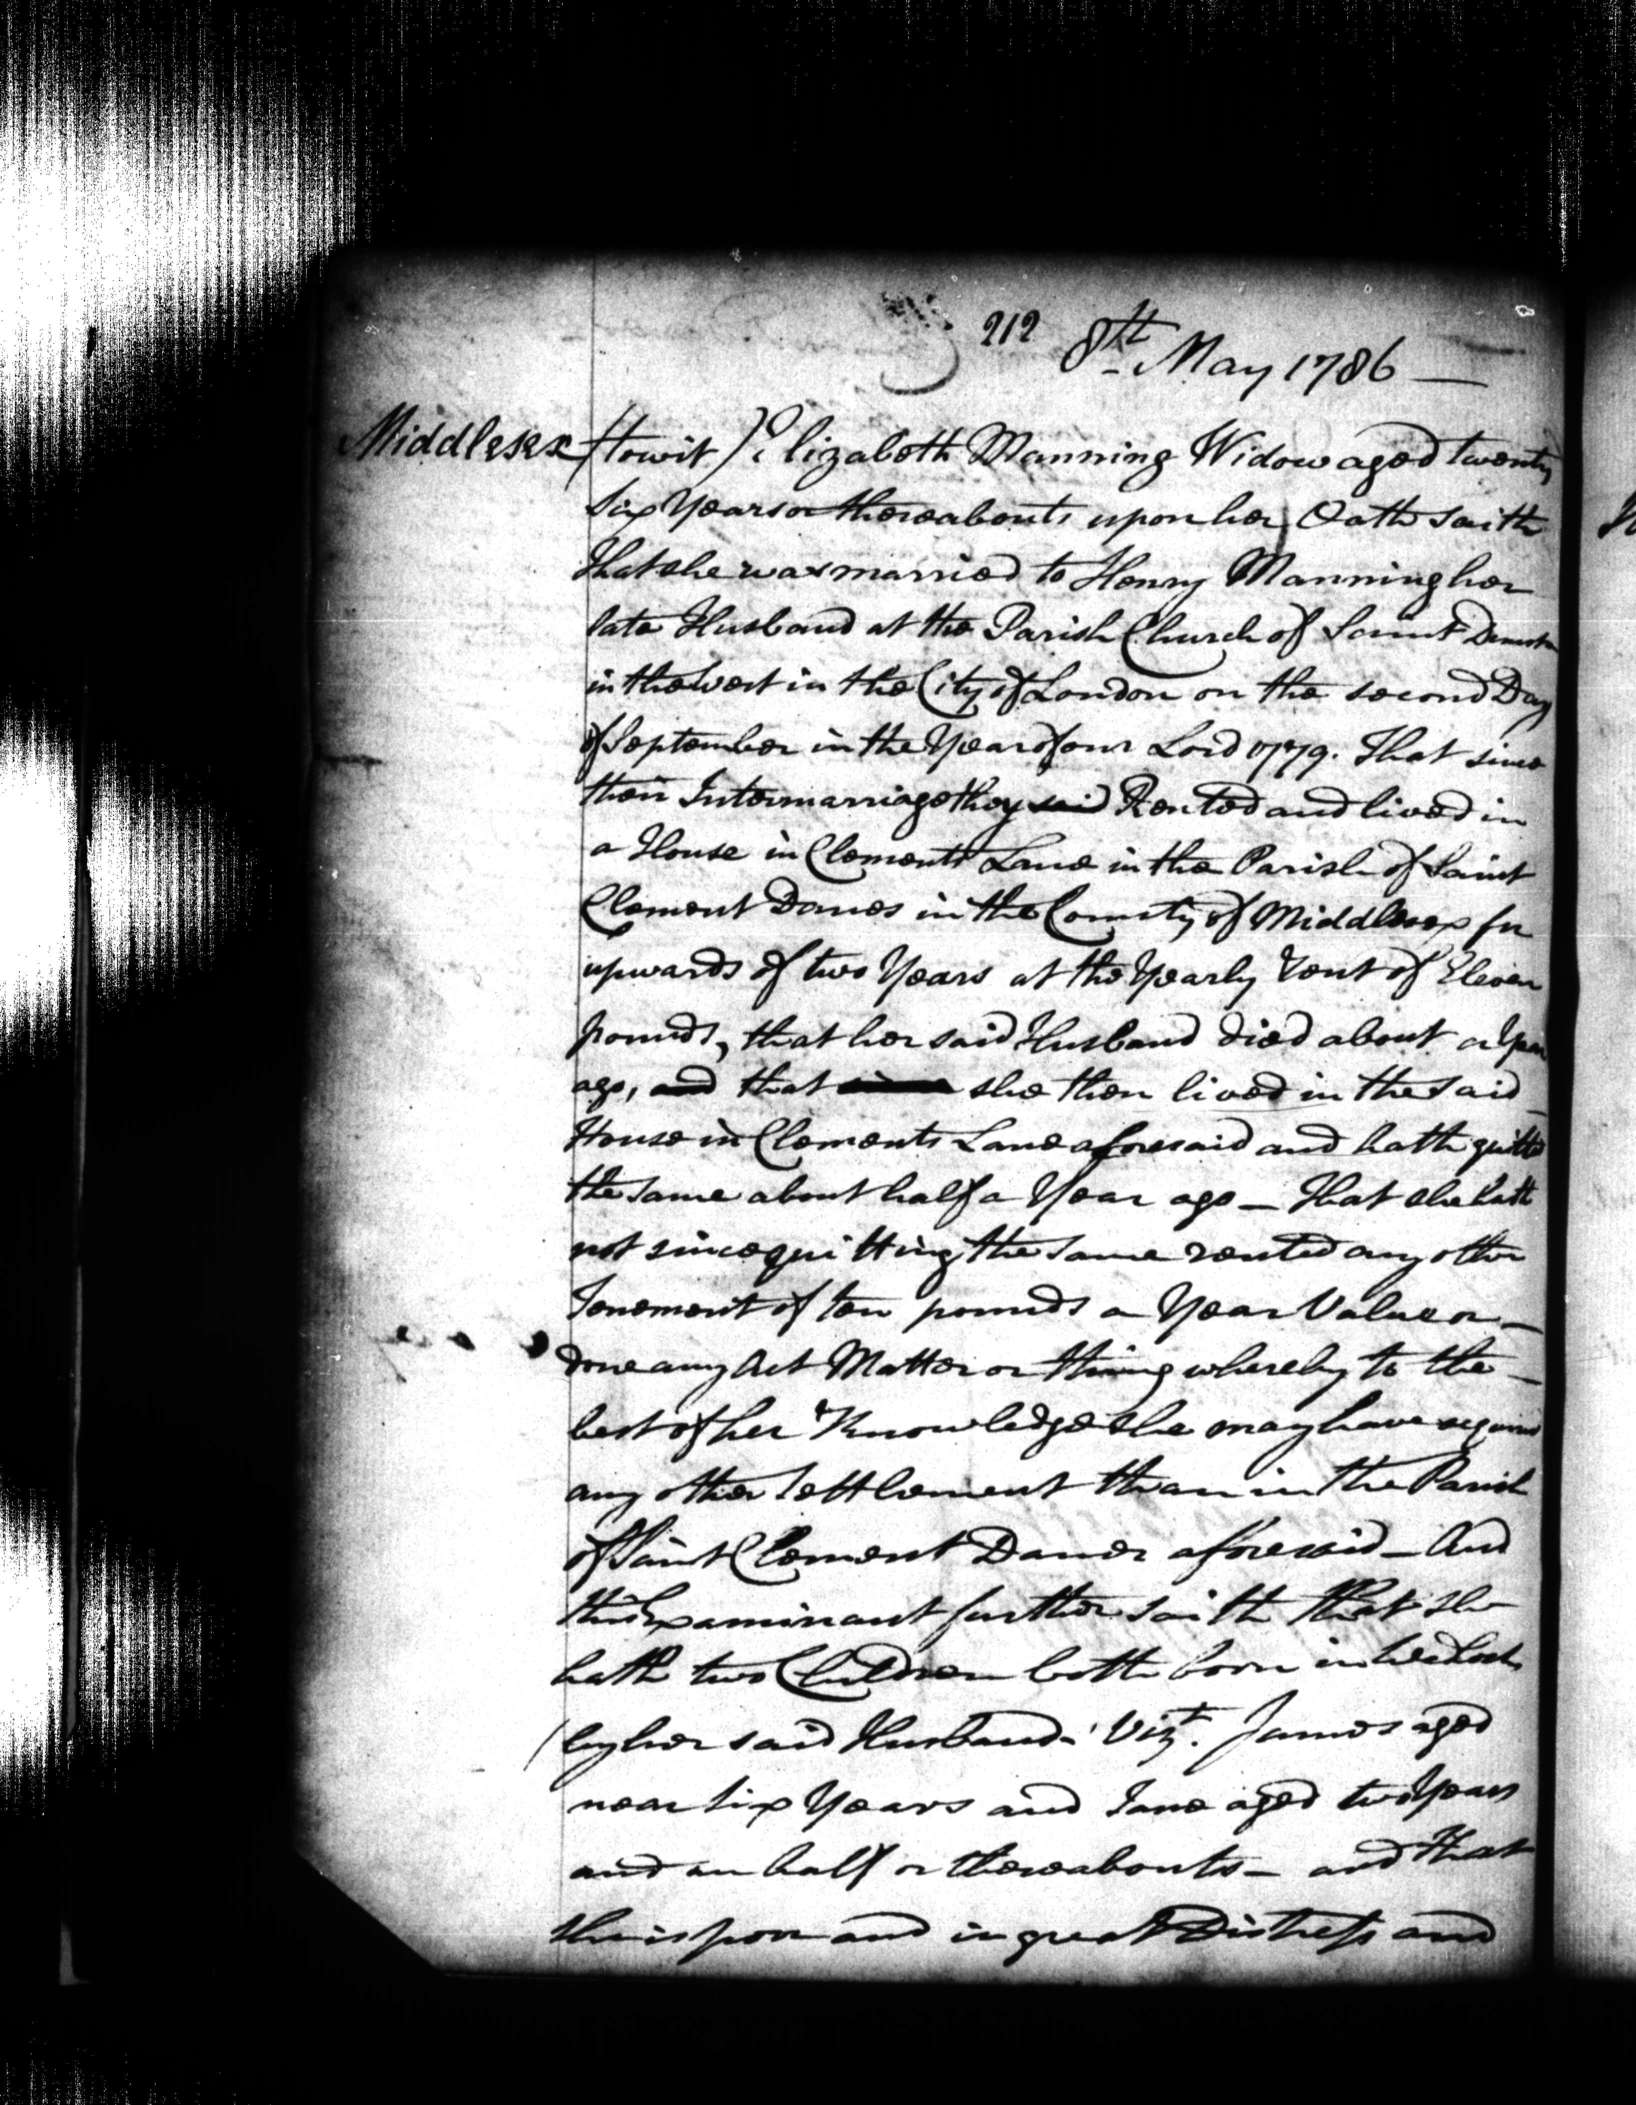 212 8th May 1786
Middlesex (towit) Elizabeth Manning Widow aged twenty
six Years or thereabouts upon her Oath saith
That she was married to Henry Manning her
late Husband at the Parish Church of Saint Dunstan
in the West in the City of London on the second Day
of September in the Year of our Lord 1779. That since
their Intermarriage they said Rented and lived in
a House in Clements Lane in the Parish of Saint
Clement Danes in the County of Middlesex for
upwards of two Years at the Yearly Rent of Eleven
pounds, that her said Husband died about a Year
ago, and that since she then lived in the said
House in Clements Lane aforesaid and hath quitted
the same about half a Year ago - That she hath
not since quitting the same rented any other
Tenement of ten pounds a Year Value or
done any Act Matter or thing whereby to the
best of her Knowledge she may have acquired
any other Settlement than in the Parish
of Saint Clement Danes aforesaid - And
this Examinant further saith that she
hath two Children both born in Wedlock
by her said Husband Vizt. James aged
near six Years and Jane aged two Years
and an half or thereabouts - and that
she is poor and in great Distress and